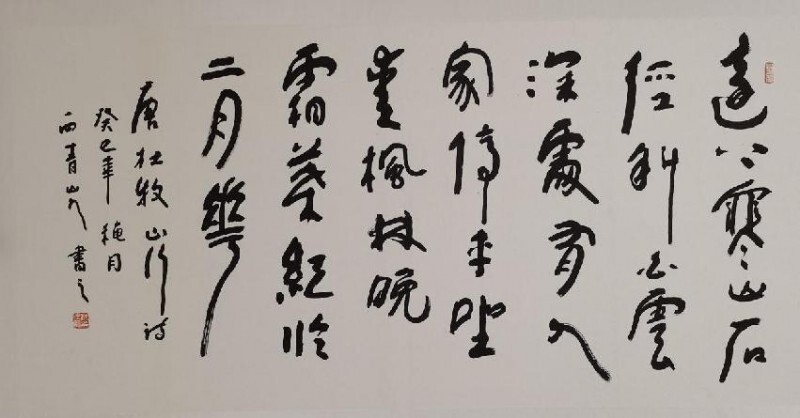 遠上寒山石
徑斜白雲
深處有人
家停車坐
愛楓林晚
霜葉紅於
二月華
唐杜牧山行詩
癸巳年 穐月
西青山人書之